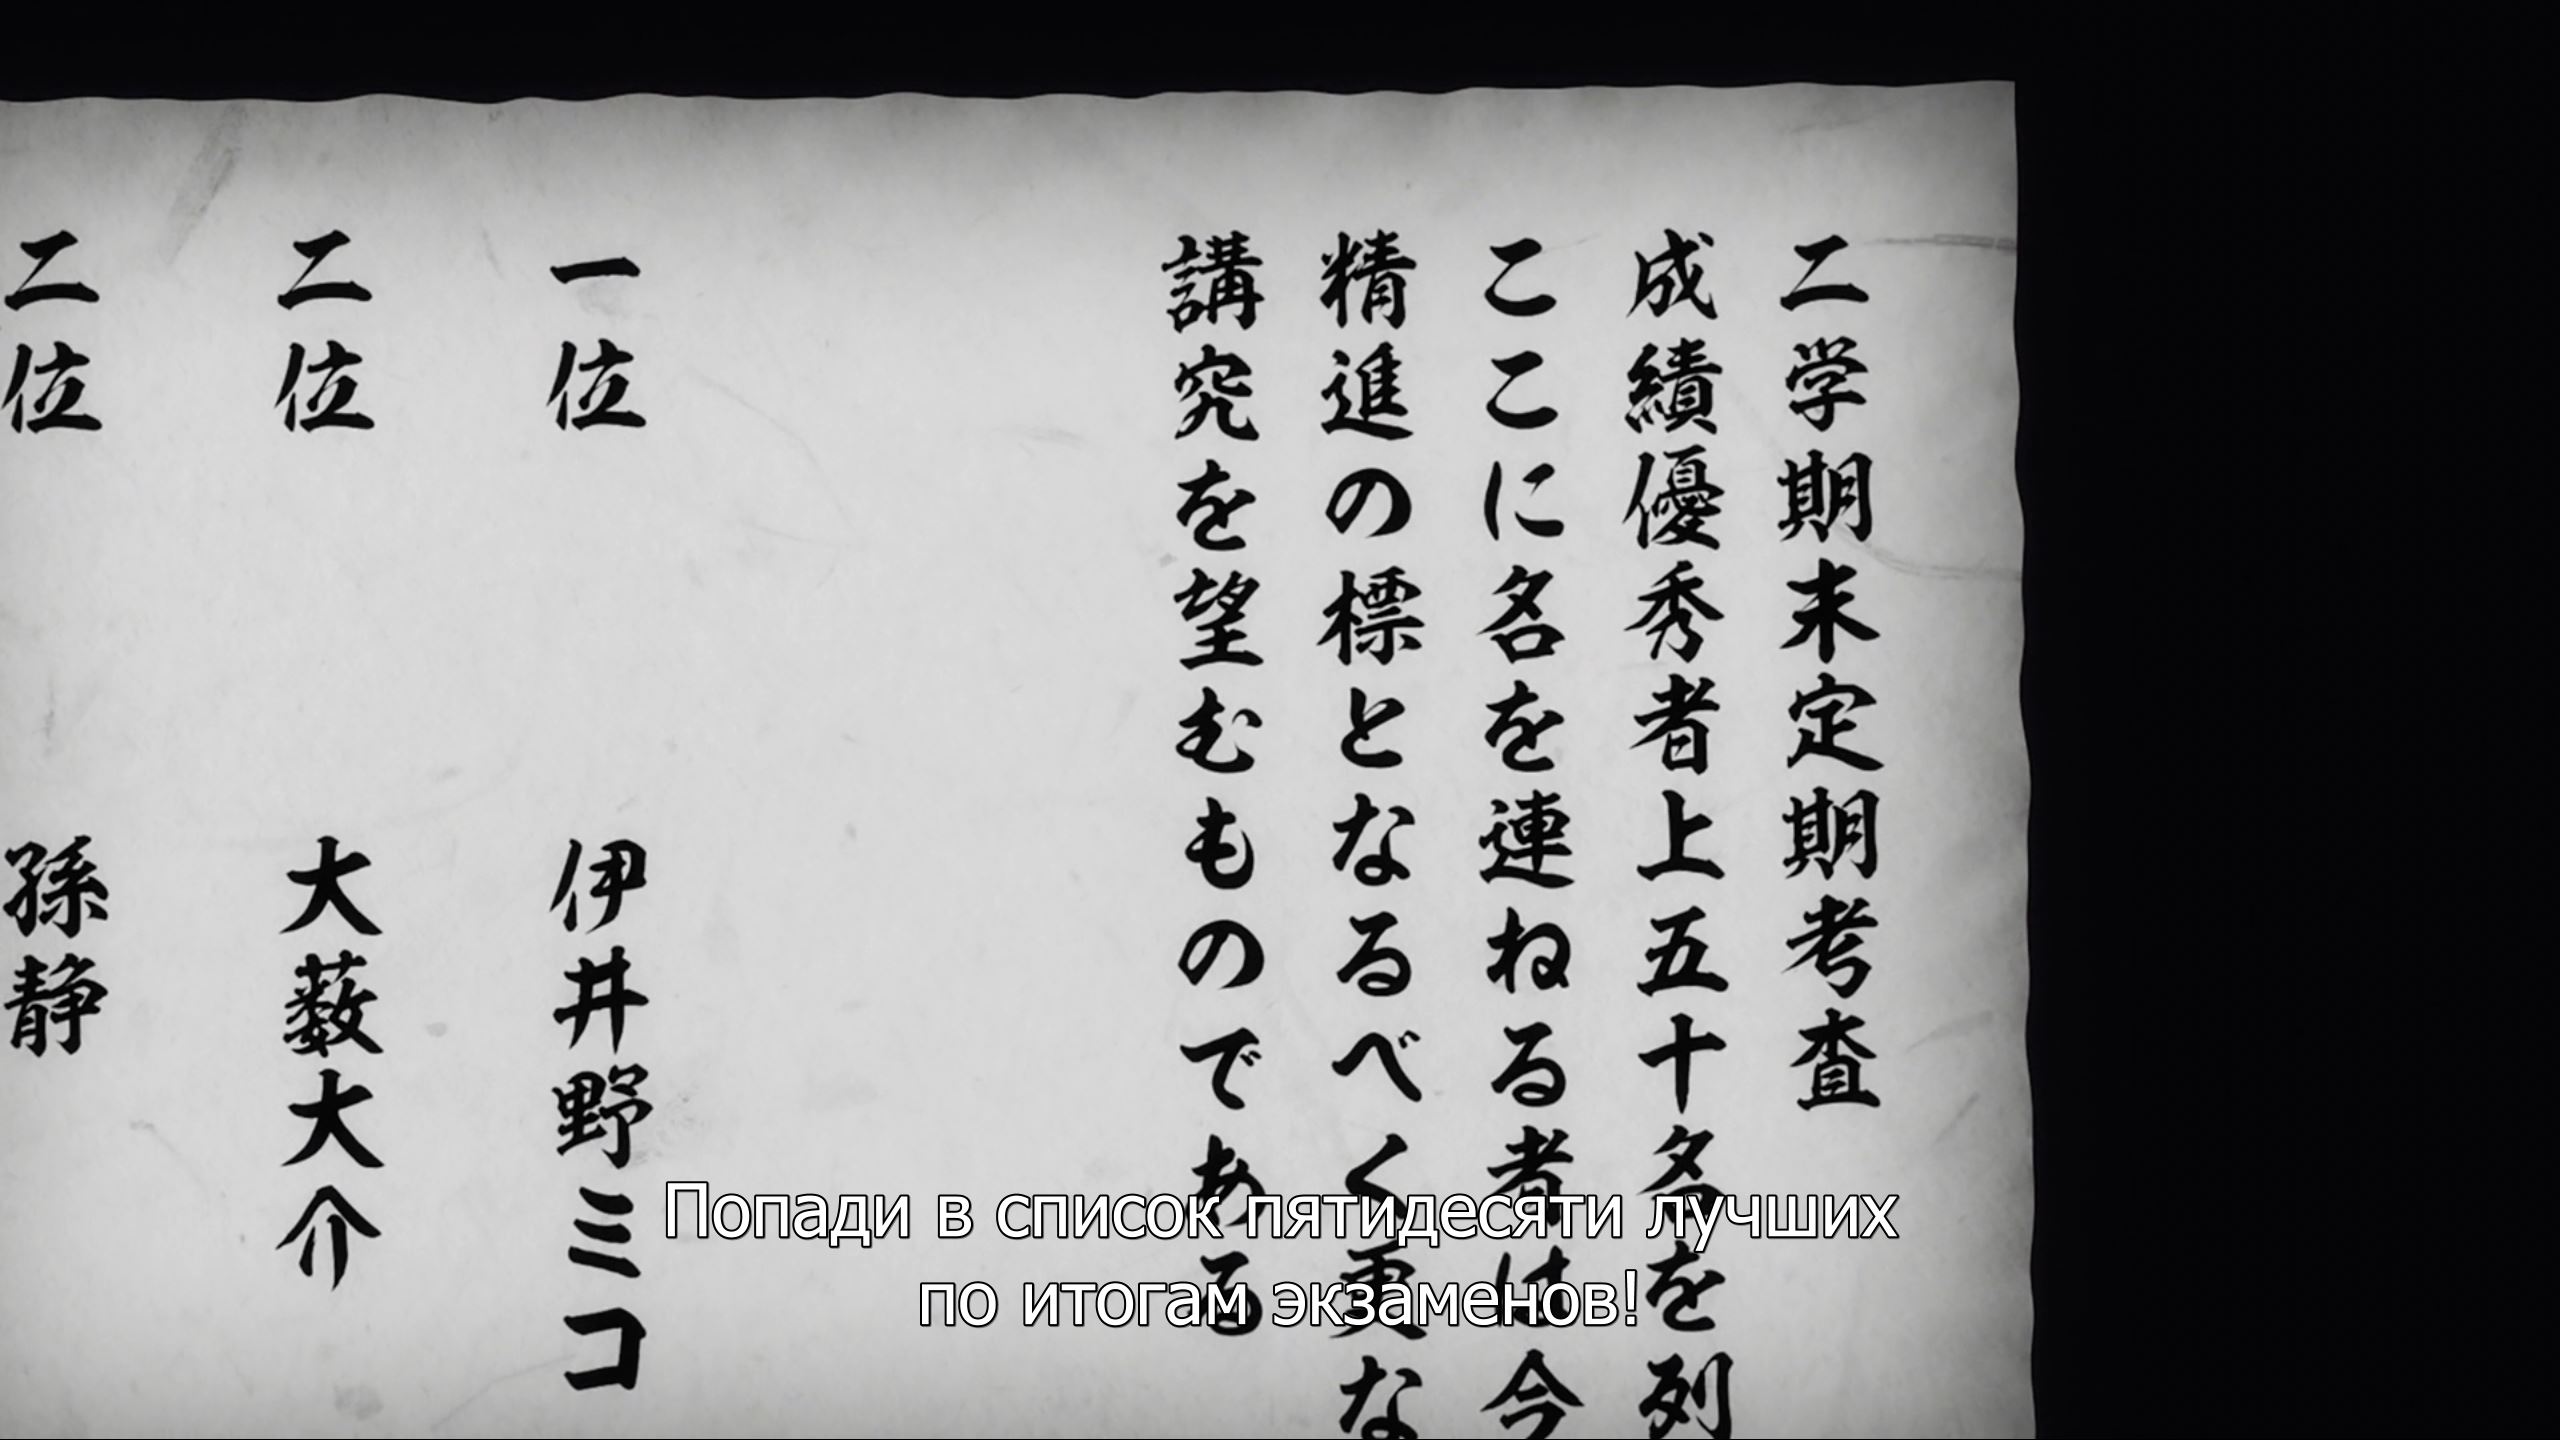 二学期末定期考査
成績優秀者上五十名を列
ここに名を連ねる者は今
精進の標となるべく更な
講究を望むものである
一位 伊井野ミコ
二位 大薮大介
二位 孫静
Попади в список пятидесяти лучших
по итогам экзаменов!